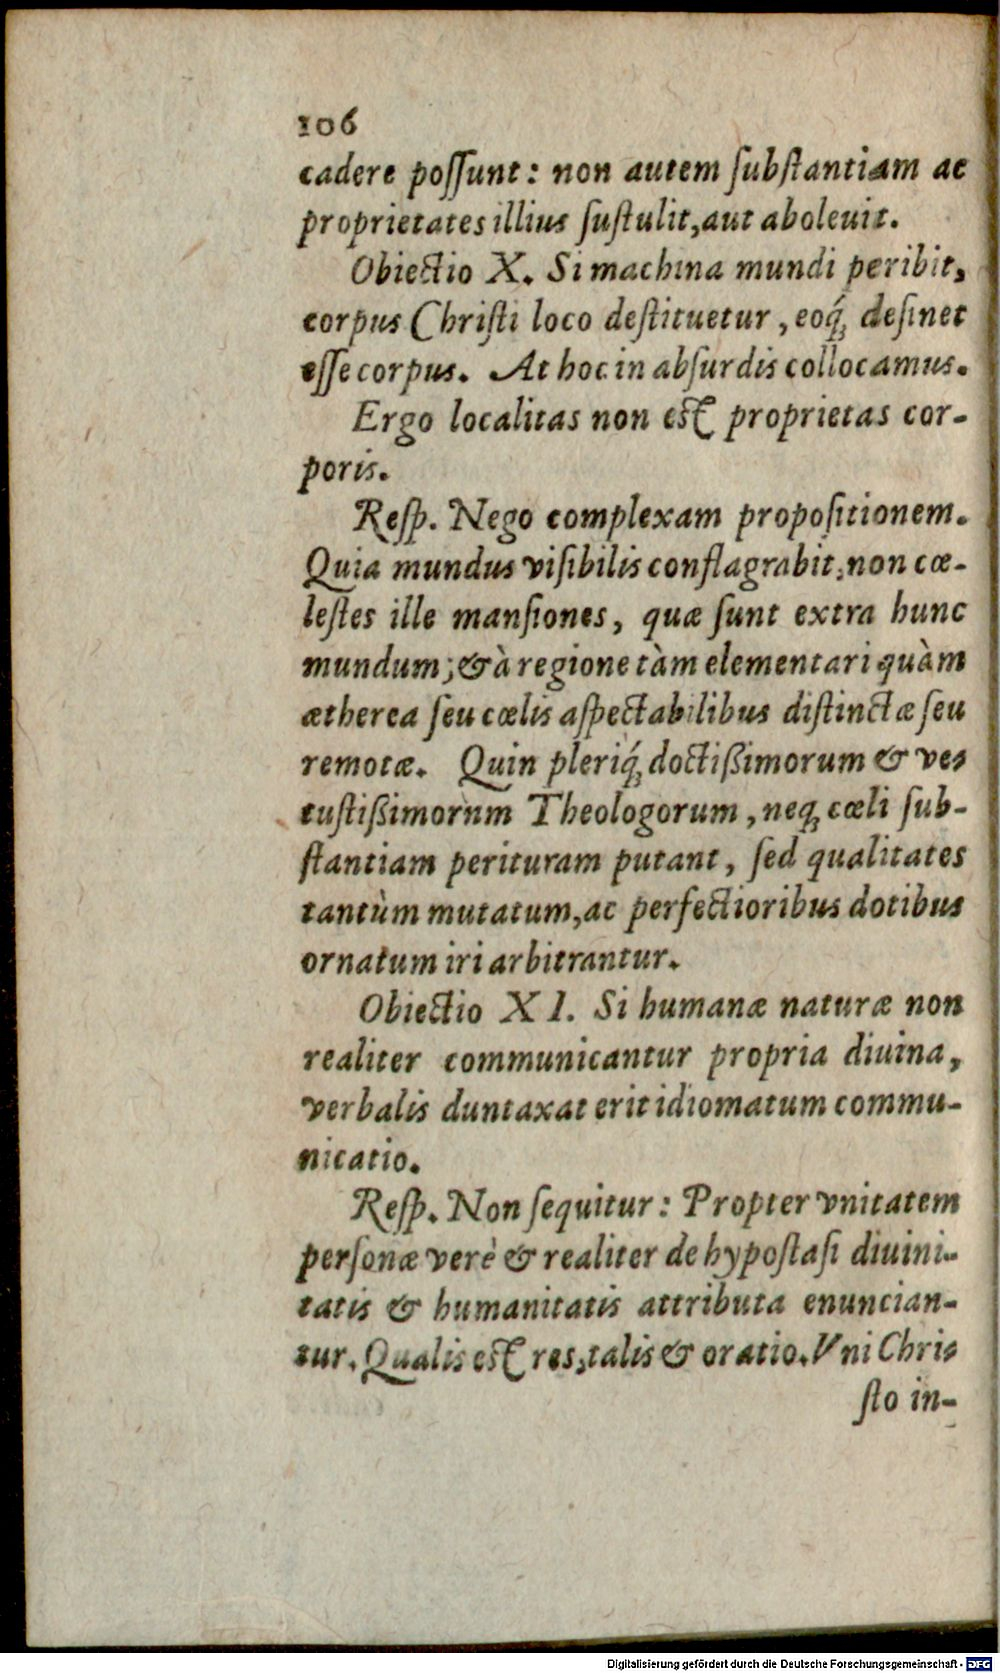 106
cadere poſſunt: non autem ſubſtantiam ac
proprietates illius ſuſtulit, aut aboleuit.
Obiectio X. Si machina mundi peribit,
corpus Chriſti loco deſtituetur, eoq́; deſinet
eſſe corpus. At hoc in abſurdis collocamus.
Ergo localitas non eſt proprietas cor-
poris.
Reſp. Nego complexam propoſitionem.
Quia mundus viſibilis conflagrabit, non cœ-
leſtes ille manſiones, quæ ſunt extra hunc
mundum; & à regione tàm elementari quàm
ætherea ſeu cœlis aſpectabilibus diſtinctæ ſeu
remotæ. Quin pleriq́; doctißimorum & ve-
tuſtißimornm Theologorum, neq; cœli ſub-
ſtantiam perituram putant, ſed qualitates
tantùm mutatum, ac perfectioribus dotibus
ornatum iri arbitrantur.
Obiectio XI. Si humanæ naturæ non
realiter communicantur propria diuina,
verbalis duntaxat erit idiomatum commu-
nicatio.
Reſp. Non ſequitur: Propter vnitatem
perſonæ verè & realiter de hypoſtaſi diuini-
tatis & humanitatis attributa enuncian-
tur. Qualis eſt res, talis & oratio. Vni Chri-
ſto in-
Digitalisierung gefördert durch die Deutsche Forschungsgemeinschaft - DFG